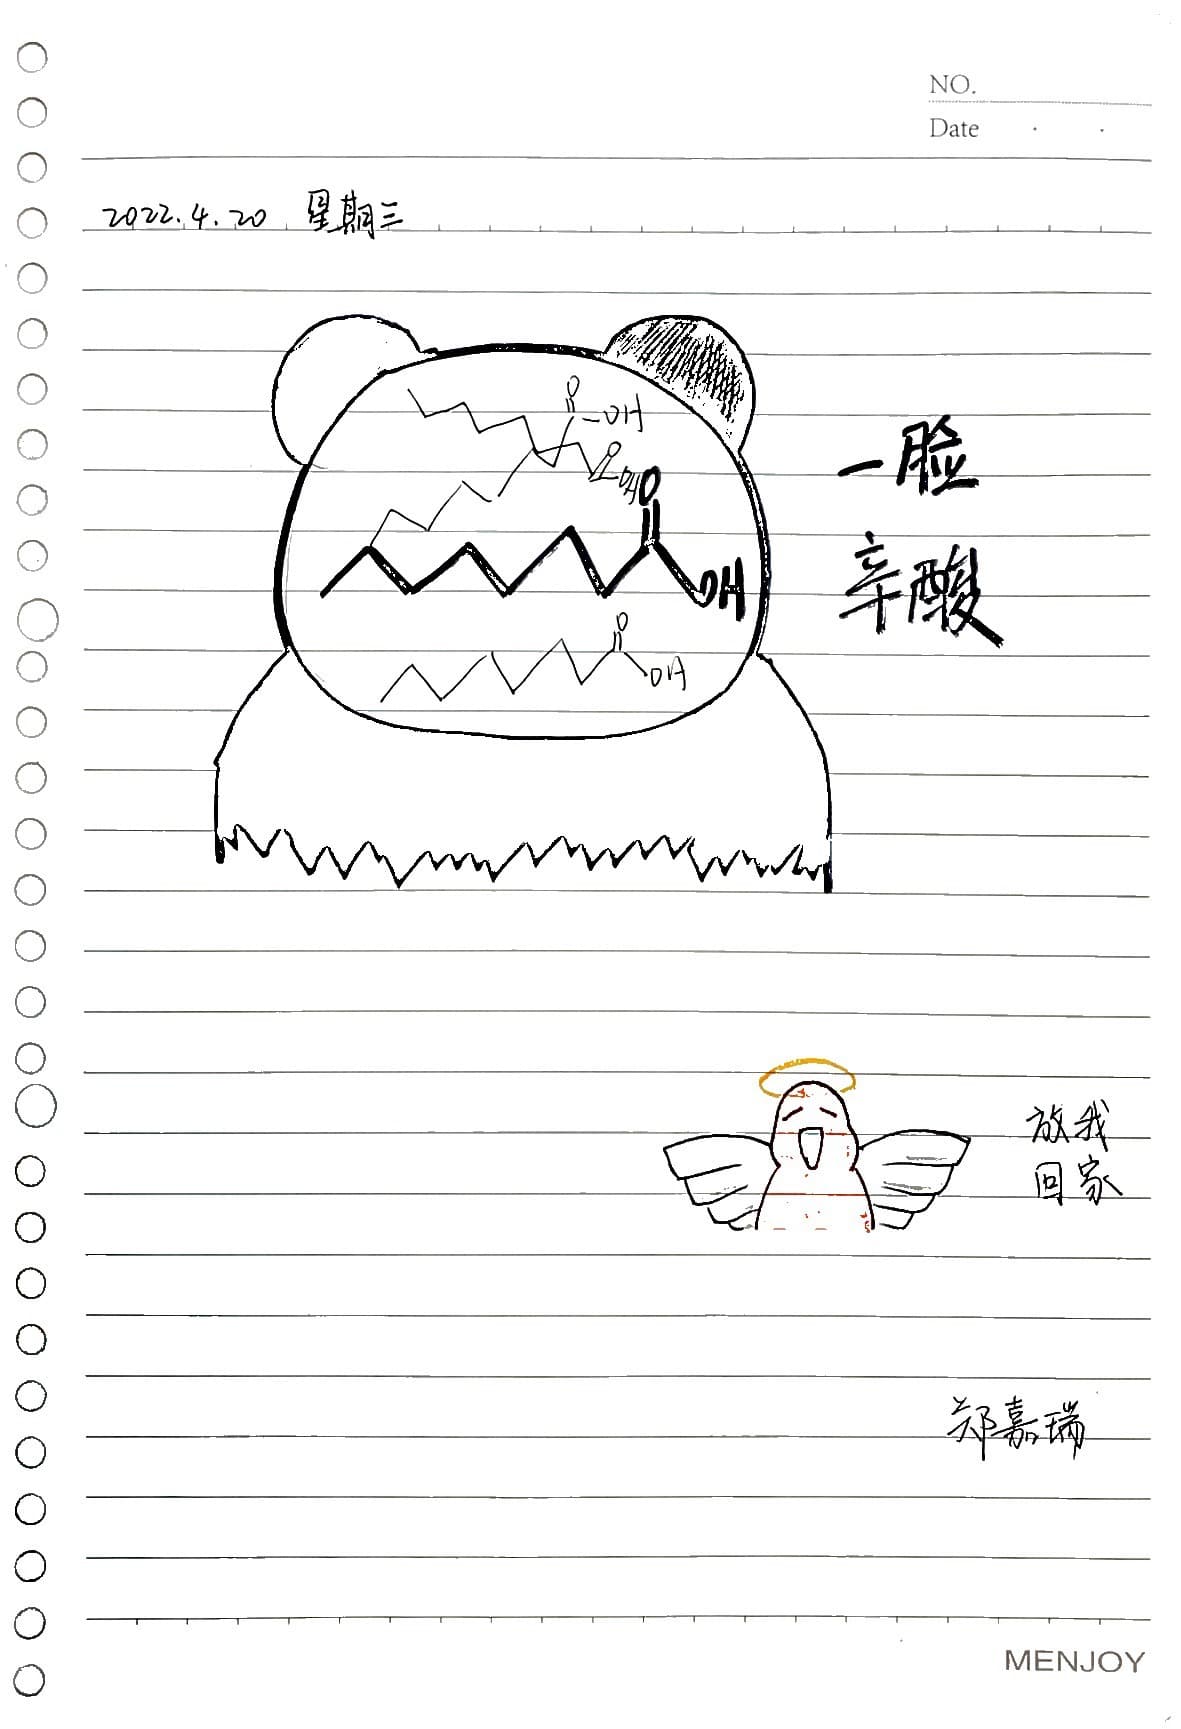 NO.
Date
2022.4.20 星期三
O
OH
O
OH
O
OH
O
OH
一脸
辛酸
放我
回家
郑嘉瑞
MENJOY